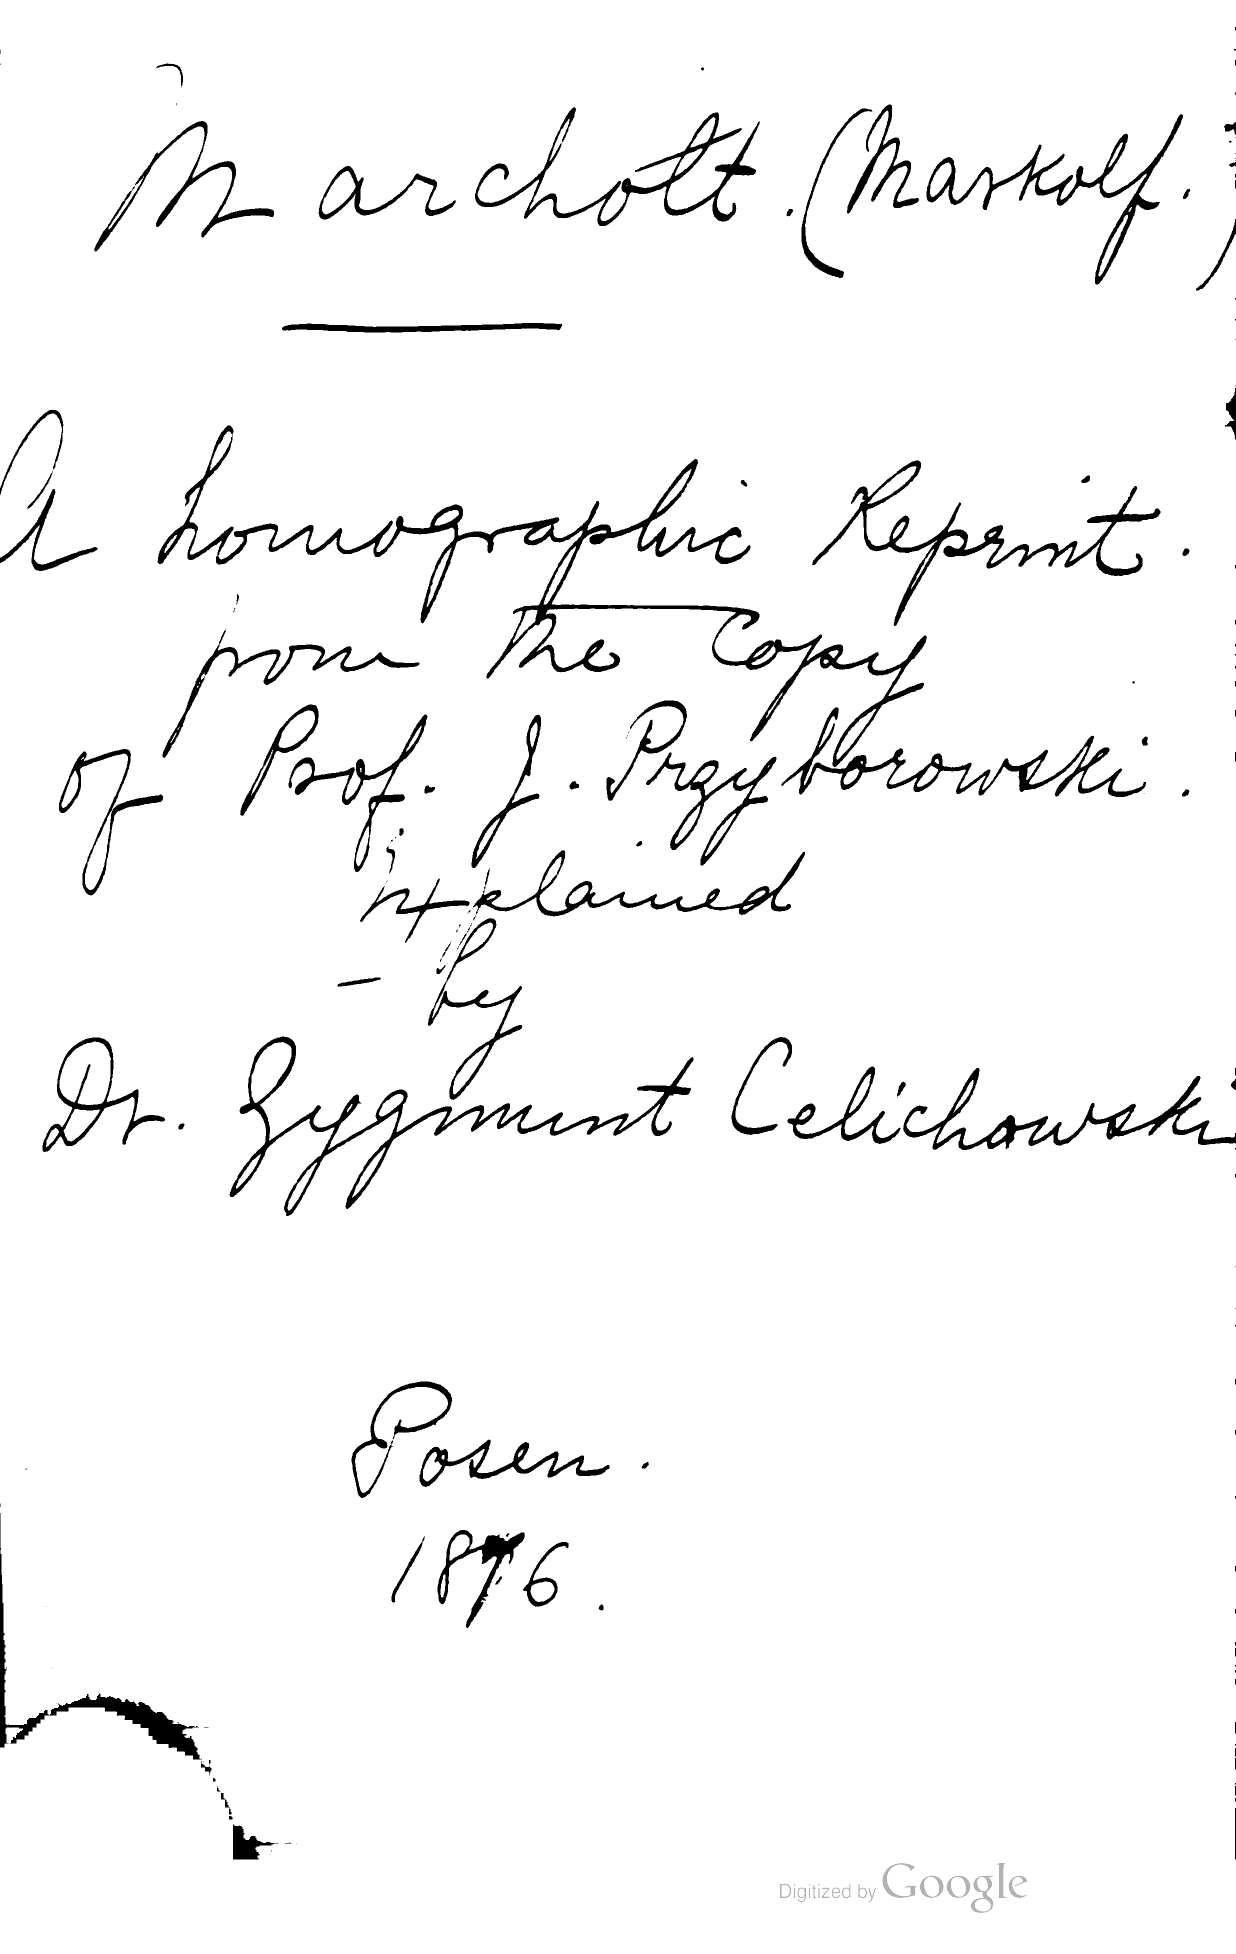 Marchott. (Markolf.)
A homographic Reprint.
from the Copy
of Prof. J. Przyborowski.
explained
- by
Dr. Zygmunt Celichowski
Posen.
1876.
Digitized by Google